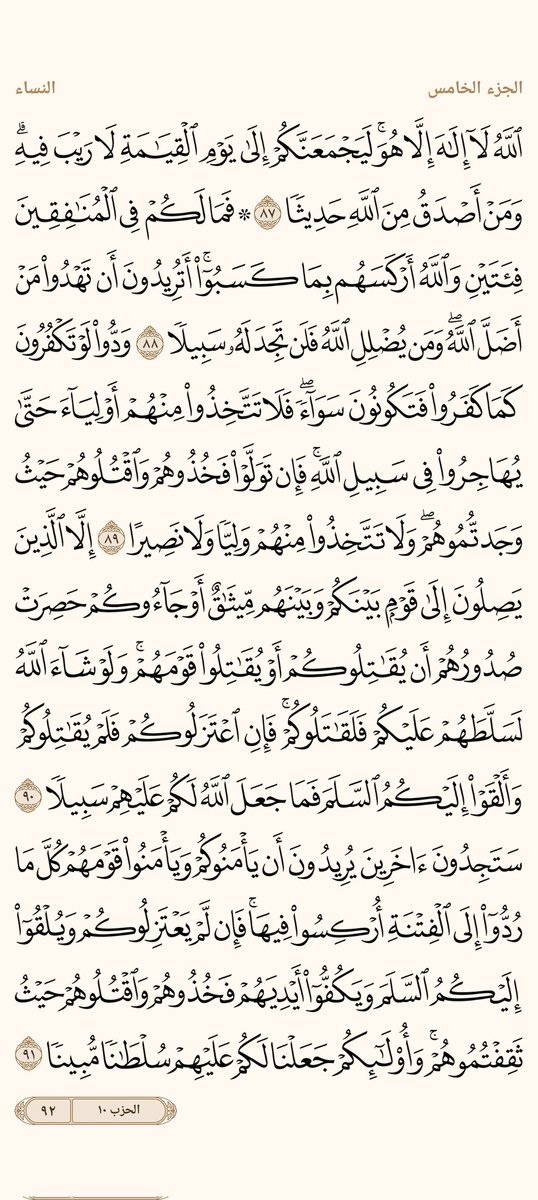 الجزء الخامس
النساء
ٱللَّهُ لَآ إِلَٰهَ إِلَّا هُوَۚ لَيَجۡمَعَنَّكُمۡ إِلَىٰ يَوۡمِ ٱلۡقِيَٰمَةِ لَا رَيۡبَ فِيهِۗ
وَمَنۡ أَصۡدَقُ مِنَ ٱللَّهِ حَدِيثٗا ٨٧ ۞ فَمَا لَكُمۡ فِي ٱلۡمُنَٰفِقِينَ
فِئَتَيۡنِ وَٱللَّهُ أَرۡكَسَهُم بِمَا كَسَبُوٓاْۚ أَتُرِيدُونَ أَن تَهۡدُواْ مَنۡ
أَضَلَّ ٱللَّهُۖ وَمَن يُضۡلِلِ ٱللَّهُ فَلَن تَجِدَ لَهُۥ سَبِيلٗا ٨٨ وَدُّواْ لَوۡ تَكۡفُرُونَ
كَمَا كَفَرُواْ فَتَكُونُونَ سَوَآءٗۖ فَلَا تَتَّخِذُواْ مِنۡهُمۡ أَوۡلِيَآءَ حَتَّىٰ
يُهَاجِرُواْ فِي سَبِيلِ ٱللَّهِۚ فَإِن تَوَلَّوۡاْ فَخُذُوهُمۡ وَٱقۡتُلُوهُمۡ حَيۡثُ
وَجَدتُّمُوهُمۡۖ وَلَا تَتَّخِذُواْ مِنۡهُمۡ وَلِيّٗا وَلَا نَصِيرًا ٨٩ إِلَّا ٱلَّذِينَ
يَصِلُونَ إِلَىٰ قَوۡمِۭ بَيۡنَكُمۡ وَبَيۡنَهُم مِّيثَٰقٌ أَوۡ جَآءُوكُمۡ حَصِرَتۡ
صُدُورُهُمۡ أَن يُقَٰتِلُوكُمۡ أَوۡ يُقَٰتِلُواْ قَوۡمَهُمۡۚ وَلَوۡ شَآءَ ٱللَّهُ
لَسَلَّطَهُمۡ عَلَيۡكُمۡ فَلَقَٰتَلُوكُمۡۚ فَإِنِ ٱعۡتَزَلُوكُمۡ فَلَمۡ يُقَٰتِلُوكُمۡ
وَأَلۡقَوۡاْ إِلَيۡكُمُ ٱلسَّلَمَ فَمَا جَعَلَ ٱللَّهُ لَكُمۡ عَلَيۡهِمۡ سَبِيلٗا ٩٠
سَتَجِدُونَ ءَاخَرِينَ يُرِيدُونَ أَن يَأۡمَنُوكُمۡ وَيَأۡمَنُواْ قَوۡمَهُمۡ كُلَّ مَا
رُدُّوٓاْ إِلَى ٱلۡفِتۡنَةِ أُرۡكِسُواْ فِيهَاۚ فَإِن لَّمۡ يَعۡتَزِلُوكُمۡ وَيُلۡقُوٓاْ
إِلَيۡكُمُ ٱلسَّلَمَ وَيَكُفُّوٓاْ أَيۡدِيَهُمۡ فَخُذُوهُمۡ وَٱقۡتُلُوهُمۡ حَيۡثُ
ثَقِفۡتُمُوهُمۡۚ وَأُوْلَٰٓئِكُمۡ جَعَلۡنَا لَكُمۡ عَلَيۡهِمۡ سُلۡطَٰنٗا مُّبِينٗا ٩١
الحزب ١٠
٩٢